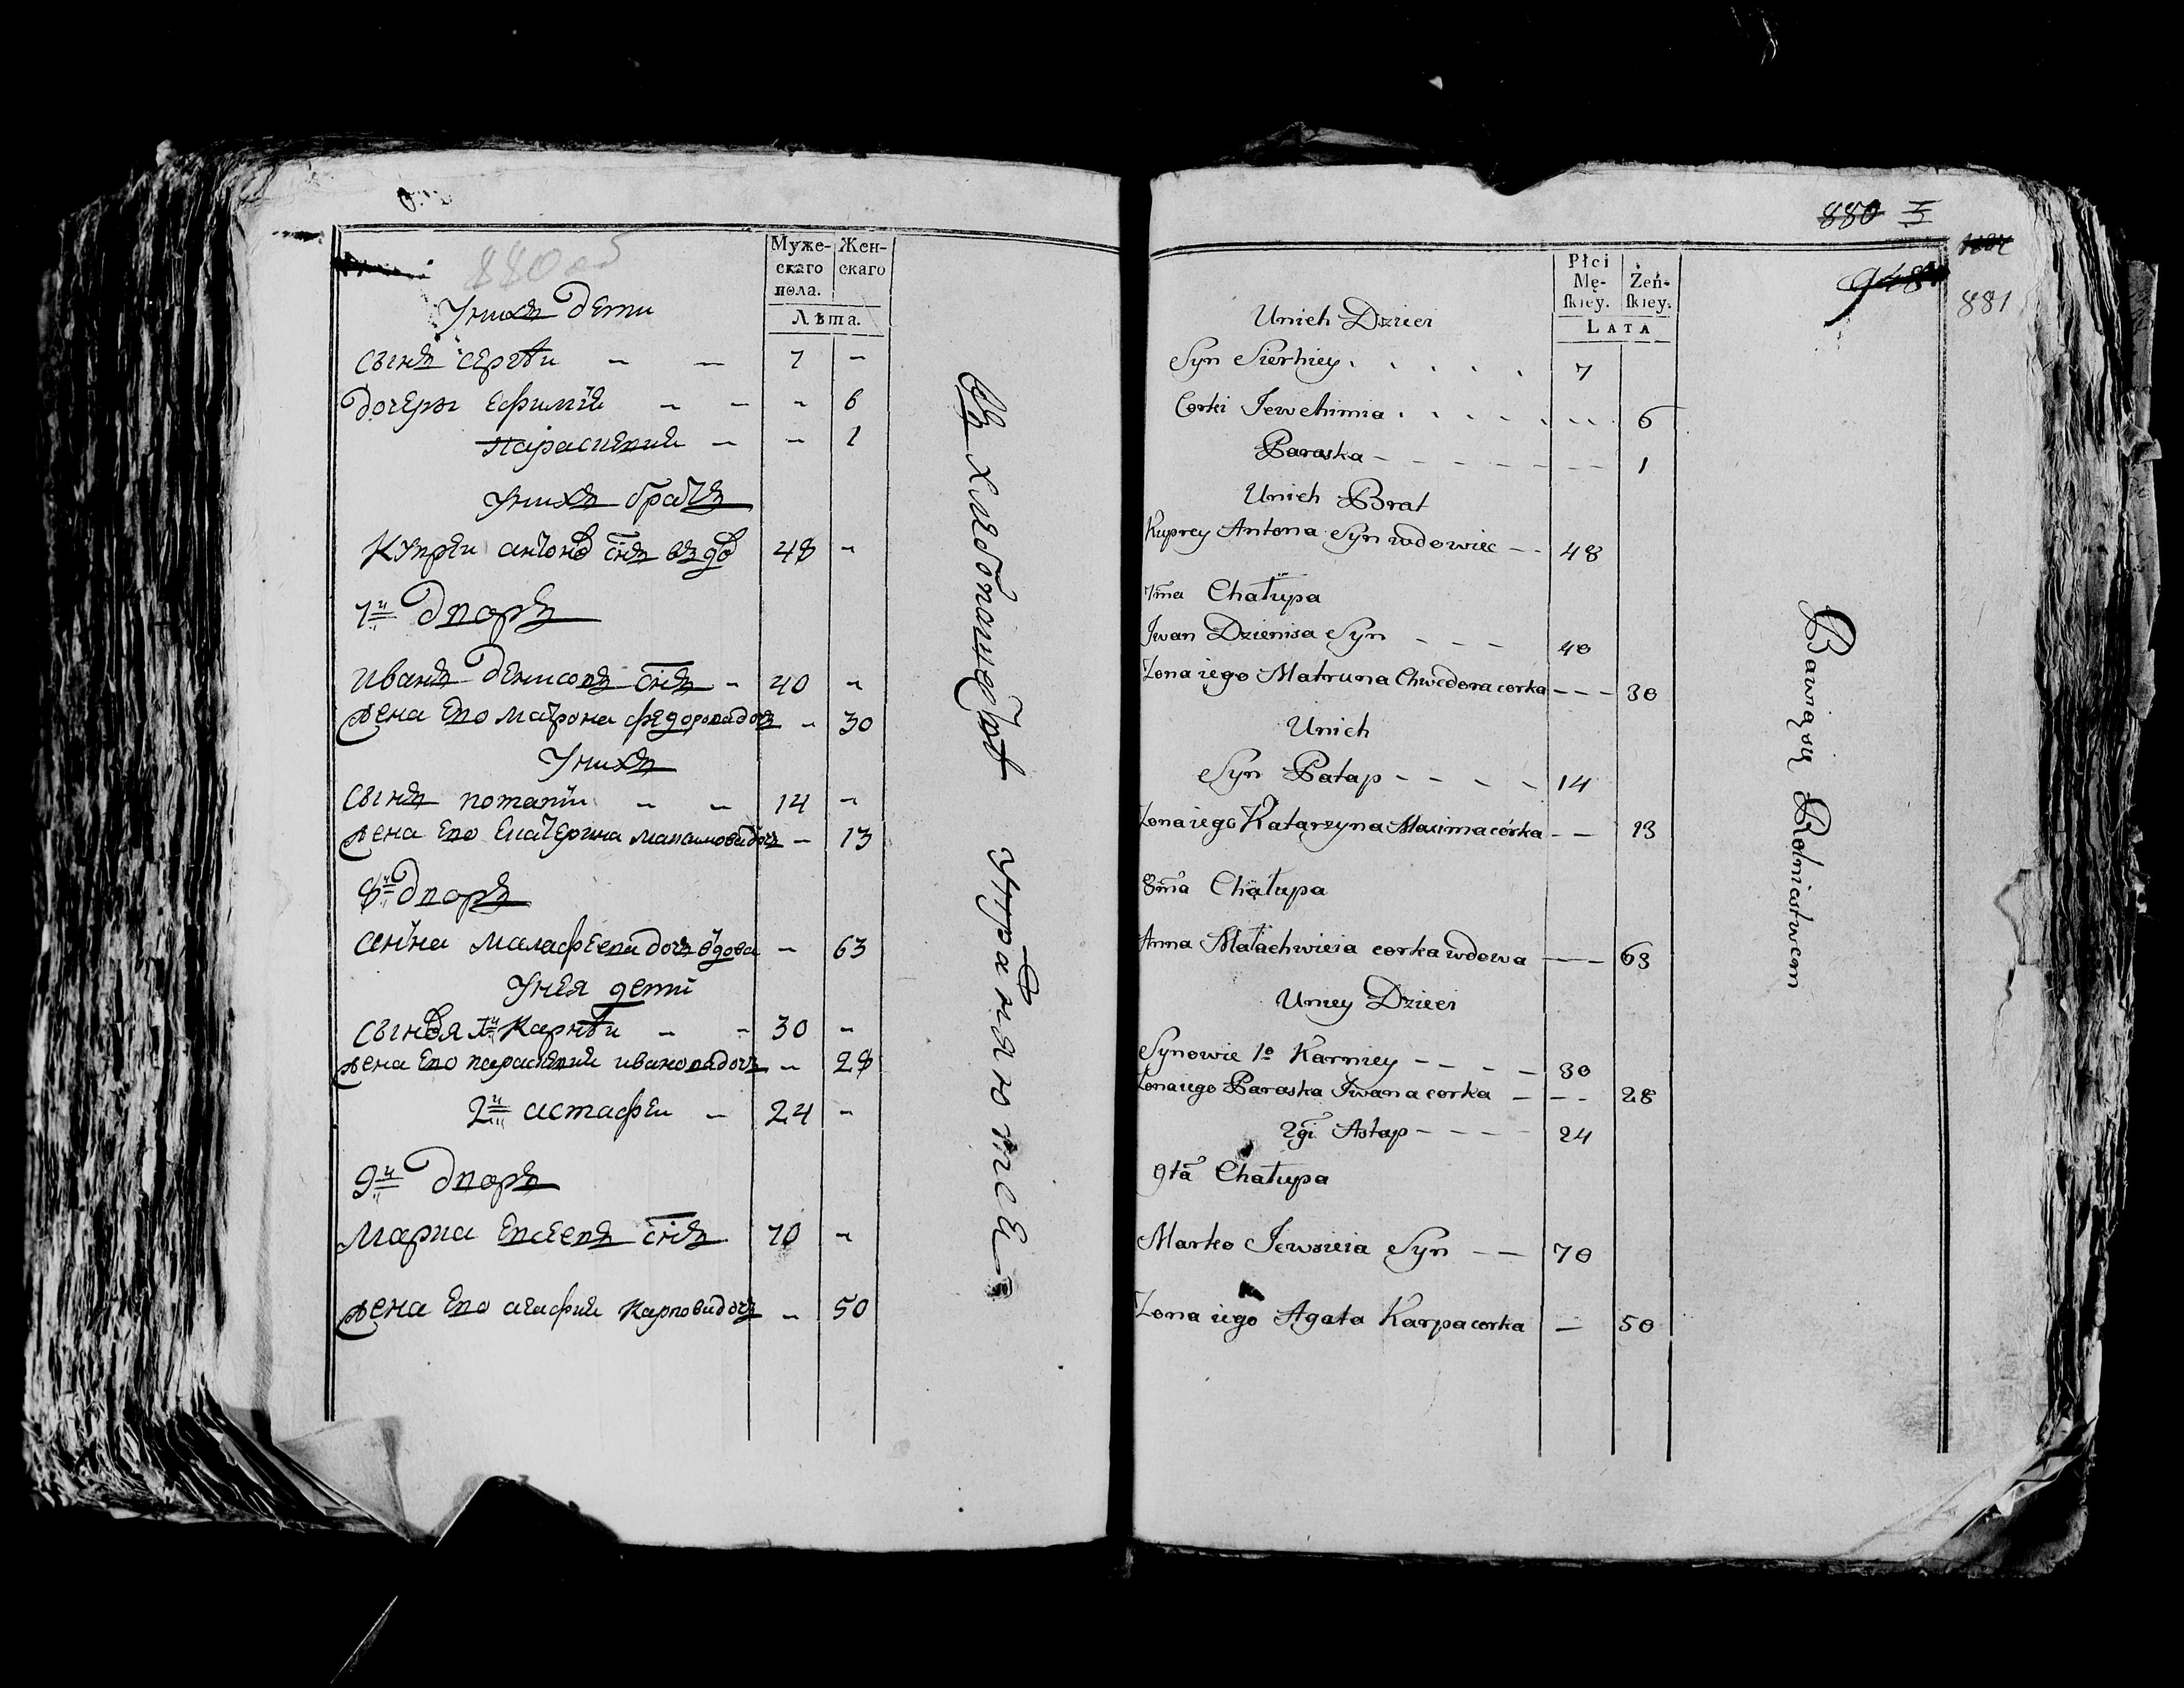 880 об
Муже-
скаго
пола.
Жен-
скаго
Лѣта.
Унихъ Дети
Сынъ Сергѣи 7 -
Дочеры Ефимия - 6
Параскевия - 1
Унихъ братъ
Купреи антоновъ снъ вдовъ 48 -
7й Дворъ
Иванъ Денисовъ снъ - 40 -
Жена Ево Матрона федоровадочъ - 30
Унихъ
Сынъ потапъи 14 -
Жена Ево Екатерина максимовадочъ - 13
8й Дворъ
Анна малафеева дочъ вдова - 63
Унея дети
Сыновя 1й Карнѣи 30 -
Жена Ево параскевия ивановадочъ - 28
2й астафеи 24 -
9й Дворъ
Марка Евсеевъ снъ 70 -
Жена Ево агафия карповадочъ - 50
Въ хлебопашествѣ упражняютсѧ
880
881
Płci
Mę-
ſkiey.
Żeń-
ſkiey.
LATA
Unich Dzieci
Syn Sierhiey 7
Corki Jewchimia 6
Paraska 1
Unich Brat
Kuprey Antona Syn wdowiec 48
7ma Chałupa
Jwan Dzienisa Syn 40
Zona iego Matruna Chwedora corka 30
Unich
Syn Patap 14
Zona iego Katarzyna Maxima córka 13
8ma Chałupa
Anna Małachwieia corka wdowa 63
Uniey Dzieci
Synowie 1o Karniey 30
Zona iego Paraska Jwana corka 28
2gi Astap 24
9ta Chałupa
Marko Jewsieia Syn 70
Zona iego Agata Karpa corka 50
Bawią się Rolnictwem